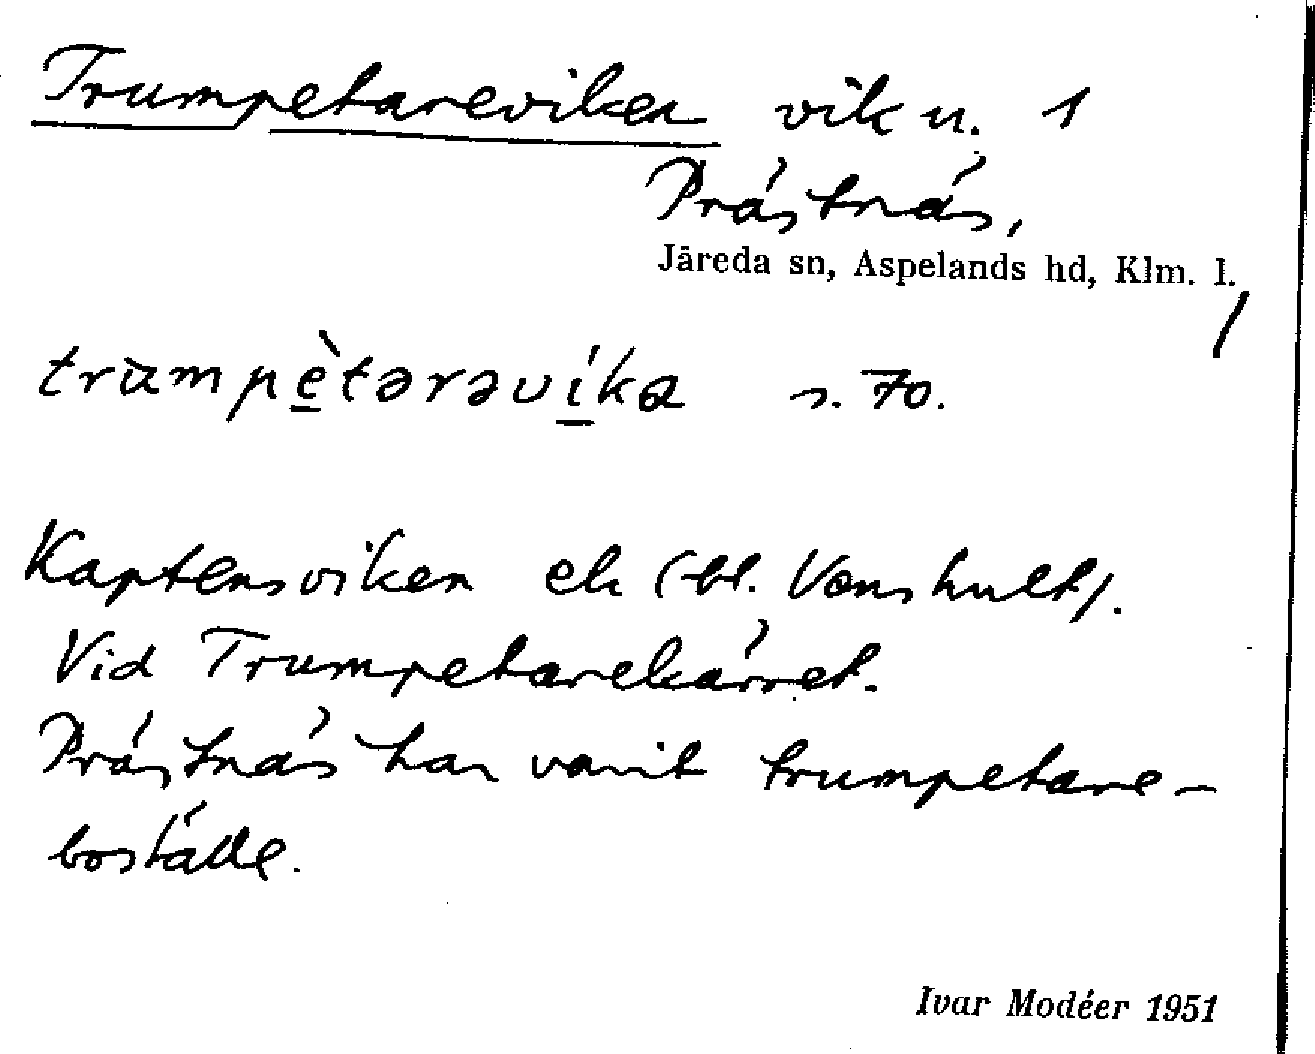 Trumpetareviken vik n. 1
Prästnäs,
Järeda sn, Aspelands hd, Klm. l.
trùmpètərəvíka s. 70.
Kaptensviken ek (bl. Vänshult).
Vid Trumpetarekärret.
Prästnäs har varit trumpetare-
boställe.
Ivar Modéer 1951